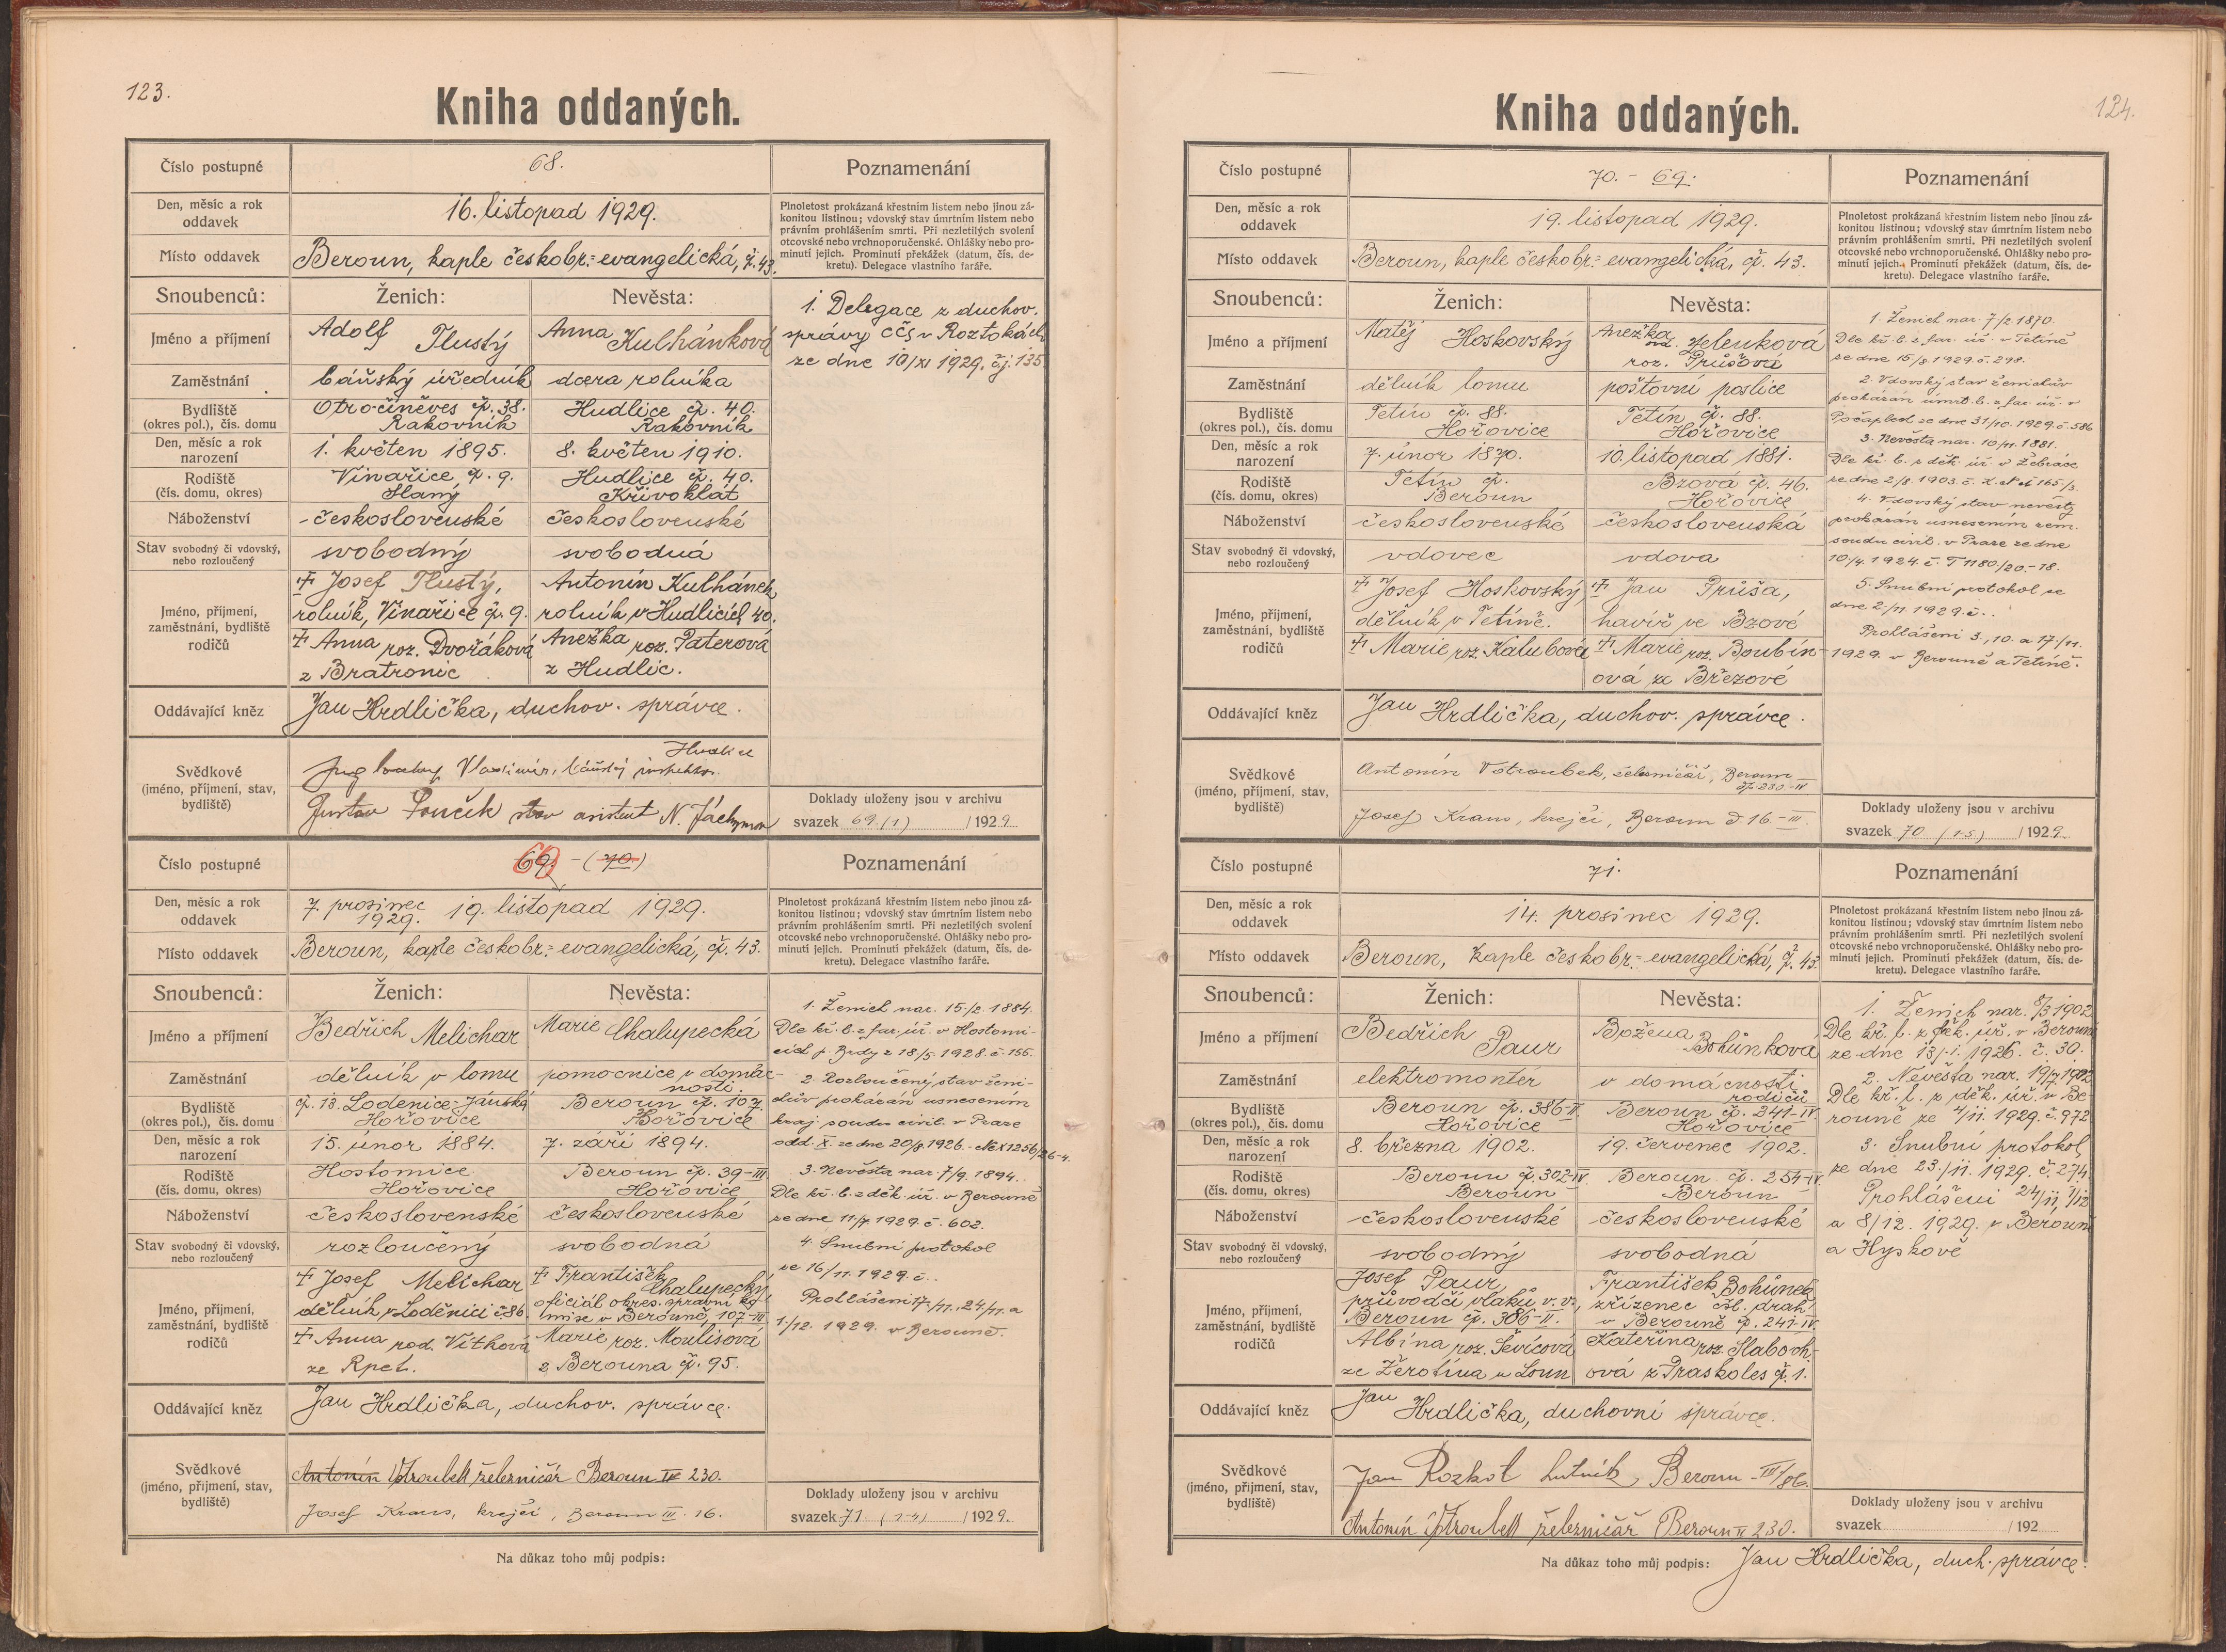 123.
Kniha oddaných.
Číslo postupné
68.
Poznamenání
Den, měsíc a rok
oddavek
16. listopad 1929.
Místo oddavek
Beroun, kaple českobr.=evangelická, č. 43.
Plnoletost prokázaná křestním listem nebo jinou zá-
konitou listinou; vdovský stav úmrtním listem nebo
právním prohlášením smrti. Při nezletilých svolení
otcovské nebo vrchnoporučenské. Ohlášky nebo pro-
minutí jejich. Prominutí překážek (datum, čís. de-
kretu). Delegace vlastního faráře.
Snoubenců:
Ženich:
Nevěsta:
Jméno a příjmení
Adolf Tlustý
Anna Kulhánková
Zaměstnání
báňský úředník
dcera rolníka
Bydliště
(okres pol.), čís. domu
Otročiněves čp. 38.
Rakovník
Hudlice čp. 40.
Rakovník
Den, měsíc a rok
narození
1. květen 1895.
8. květen 1910.
Rodiště
(čís. domu, okres)
Vinařice č. p. 9.
Slaný
Hudlice čp. 40.
Křivoklát
Náboženství
československé
československé
Stav svobodný či vdovský,
nebo rozloučený
svobodný
svobodná
Jméno, příjmení,
zaměstnání, bydliště
rodičů
† Josef Tlustý,
rolník, Vinařice čp. 9.
† Anna roz. Dvořáková
z Bratronic
Antonín Kulhánek
rolník v Hudlicích 40.
Anežka roz. Paterová
z Hudlic.
1. Delegace z duchov.
správy CČS v Roztokách
ze dne 10/XI 1929. čj. 135
Oddávající kněz
Jan Hrdlička, duchov. správce.
Svědkové
(jméno, příjmení, stav,
bydliště)
Hudlice
Vladimír, báňský
Gustav Souček stav asistent N. Jáchymov
Doklady uloženy jsou v archivu
svazek 69. (1) /1929
Číslo postupné
69. - (70.)
Poznamenání
Den, měsíc a rok
oddavek
7. prosinec
1929.
19. listopad 1929.
Místo oddavek
Beroun, kaple českobr.=evangelická, čp. 43.
Plnoletost prokázaná křestním listem nebo jinou zá-
konitou listinou; vdovský stav úmrtním listem nebo
právním prohlášením smrti. Při nezletilých svolení
otcovské nebo vrchnoporučenské. Ohlášky nebo pro-
minutí jejich. Prominutí překážek (datum, čís. de-
kretu). Delegace vlastního faráře.
Snoubenců:
Ženich:
Nevěsta:
Jméno a příjmení
Bedřich Melichar
Marie Chalupecká
Zaměstnání
dělník v lomu
pomocnice v domác-
nosti.
Bydliště
(okres pol.), čís. domu
čp. 13. Loděnice-Jánská
Hořovice
Beroun čp. 107.
Hořovice
Den, měsíc a rok
narození
15. únor 1884.
7. září 1894.
Rodiště
(čís. domu, okres)
Hostomice
Hořovice
Beroun čp. 39-III
Hořovice
Náboženství
československé
československé
Stav svobodný či vdovský,
nebo rozloučený
rozloučený
svobodná
Jméno, příjmení,
zaměstnání, bydliště
rodičů
† Josef Melichar
dělník v Loděnici č. 86.
† Anna rod. Vítková
ze Rpet.
† František
Chalupecký
oficiál okres. správní ko-
mise v Berouně, 107-III
Marie roz. Moulisová
z Berouna čp. 95.
1. Ženich nar. 15/2. 1884.
Dle kř. l. z far. úř. v Hostomi-
cích p. Brdy z 18/5. 1928. č. 155.
2. Rozloučený stav ženi-
chův prokázán usnesením
kraj. soudu civil. v Praze
odd. X. ze dne 20/8 1926. Nc X 1256/26-4.
3. Nevěsta nar. 7/9. 1894.
Dle kř. l. z děk. úř. v Berouně
ze dne 11/7 1929. č. 602.
4. Snubní protokol
ze 16/11. 1929. č..
Prohlášení 17./11., 24/11. a
1./12. 1929. v Berouně.
Oddávající kněz
Jan Hrdlička, duchov. správce.
Svědkové
(jméno, příjmení, stav,
bydliště)
Antonín Votroubek železničář Beroun IV 230.
Josef Kraus, krejčí, Beroun III. 16.
Doklady uloženy jsou v archivu
svazek 71 (1-4) /1929.
Na důkaz toho můj podpis:
124.
Kniha oddaných.
Číslo postupné
70. - 69.
Poznamenání
Den, měsíc a rok
oddavek
19. listopad 1929.
Místo oddavek
Beroun, kaple českobr.=evangelická, čp. 43.
Plnoletost prokázaná křestním listem nebo jinou zá-
konitou listinou; vdovský stav úmrtním listem nebo
právním prohlášením smrti. Při nezletilých svolení
otcovské nebo vrchnoporučenské. Ohlášky nebo pro-
minutí jejich. Prominutí překážek (datum, čís. de-
kretu). Delegace vlastního faráře.
Snoubenců:
Ženich:
Nevěsta:
Jméno a příjmení
Matěj Hoskovský
Anežka
ovd. Jelenková
roz. Průšová
Zaměstnání
dělník lomu
poštovní poslice
Bydliště
(okres pol.), čís. domu
Tetín čp. 88.
Hořovice
Tetín čp. 88.
Hořovice
Den, měsíc a rok
narození
7. únor 1870.
10. listopad 1881.
Rodiště
(čís. domu, okres)
Tetín čp.
Beroun
Bzová čp. 46.
Hořovice
Náboženství
československé
československá
Stav svobodný či vdovský,
nebo rozloučený
vdovec
vdova
Jméno, příjmení,
zaměstnání, bydliště
rodičů
† Josef Hoskovský,
dělník v Tetíně.
† Marie roz. Kalubová
† Jan Průša,
havíř ve Bzové
† Marie roz. Boubín-
ová ze Březové
1. Ženich nar. 7/2 1870.
Dle kř. l. z far. úř. v Tetíně
ze dne 15/8 1929. č. 298.
2. Vdovský stav ženichův
prokázán úmrt. l. z far. úř. v
Počaplech ze dne 31/10. 1929. č. 586
3. Nevěsta nar. 10/11. 1881.
Dle kř. l. z děk. úř. v Žebráce
ze dne 2/8 1903. č.
4. Vdovský stav nevěsty
prokázán usnesením zem.
soudu civil. v Praze ze dne
10/4. 1924. č. T 1180/20.-18.
5. Snubní protokol ze
dne 2/11. 1929. č..
Prohlášení 3., 10. a 17./11.
1929. v Berouně a Tetíně.
Oddávající kněz
Jan Hrdlička, duchov. správce.
Svědkové
(jméno, příjmení, stav,
bydliště)
Antonín Votroubek, železničář, Beroun
čp. 230-IV
Josef Kraus, krejčí, Beroun č. 16-III.
Doklady uloženy jsou v archivu
svazek 70 (1-5) /1929.
Číslo postupné
71.
Poznamenání
Den, měsíc a rok
oddavek
14. prosinec 1929.
Místo oddavek
Beroun, kaple českobr.=evangelická, č. 43.
Plnoletost prokázaná křestním listem nebo jinou zá-
konitou listinou; vdovský stav úmrtním listem nebo
právním prohlášením smrti. Při nezletilých svolení
otcovské nebo vrchnoporučenské. Ohlášky nebo pro-
minutí jejich. Prominutí překážek (datum, čís. de-
kretu). Delegace vlastního faráře.
Snoubenců:
Ženich:
Nevěsta:
Jméno a příjmení
Bedřich Paur
Božena Bohůnková
Zaměstnání
elektromontér
v domácnosti
rodičů
Bydliště
(okres pol.), čís. domu
Beroun čp. 386-II.
Hořovice
Beroun čp. 241-IV.
Hořovice
Den, měsíc a rok
narození
8. března 1902.
19. červenec 1902.
Rodiště
(čís. domu, okres)
Beroun čp. 302-IV
Beroun
Beroun čp. 254-IV
Beroun
Náboženství
československé
československé
Stav svobodný či vdovský,
nebo rozloučený
svobodný
svobodná
Jméno, příjmení,
zaměstnání, bydliště
rodičů
Josef Paur,
průvodčí vlaků v. v.,
Beroun čp. 386-II.
Albína roz. Ševícová
ze Žerotína u Loun
František Bohůnek
zřízenec čsl. drah
v Berouně čp. 241-IV.
Kateřina roz. Slaboch-
ová z Praskoles č. 1.
1. Ženich nar. 8/3 1902
Dle kř. l. z děk. úř. v Berouně
ze dne 13/1. 1926. č. 30.
2. Nevěsta nar. 19/7 1902
Dle kř. l. z děk. úř. v Be-
rouně ze 4/11. 1929. č. 972
3. Snubní protokol
ze dne 23./11. 1929. č. 274.
Prohlášení 24/11, 1/12
a 8/12. 1929. v Berouně
a Hyskově
Oddávající kněz
Jan Hrdlička, duchovní správce.
Svědkové
(jméno, příjmení, stav,
bydliště)
Jan Rozkot hutník, Beroun-III/86.
Antonín Votroubek železničář Beroun IV 230.
Doklady uloženy jsou v archivu
svazek /192
Na důkaz toho můj podpis:
Jan Hrdlička, duch. správce.